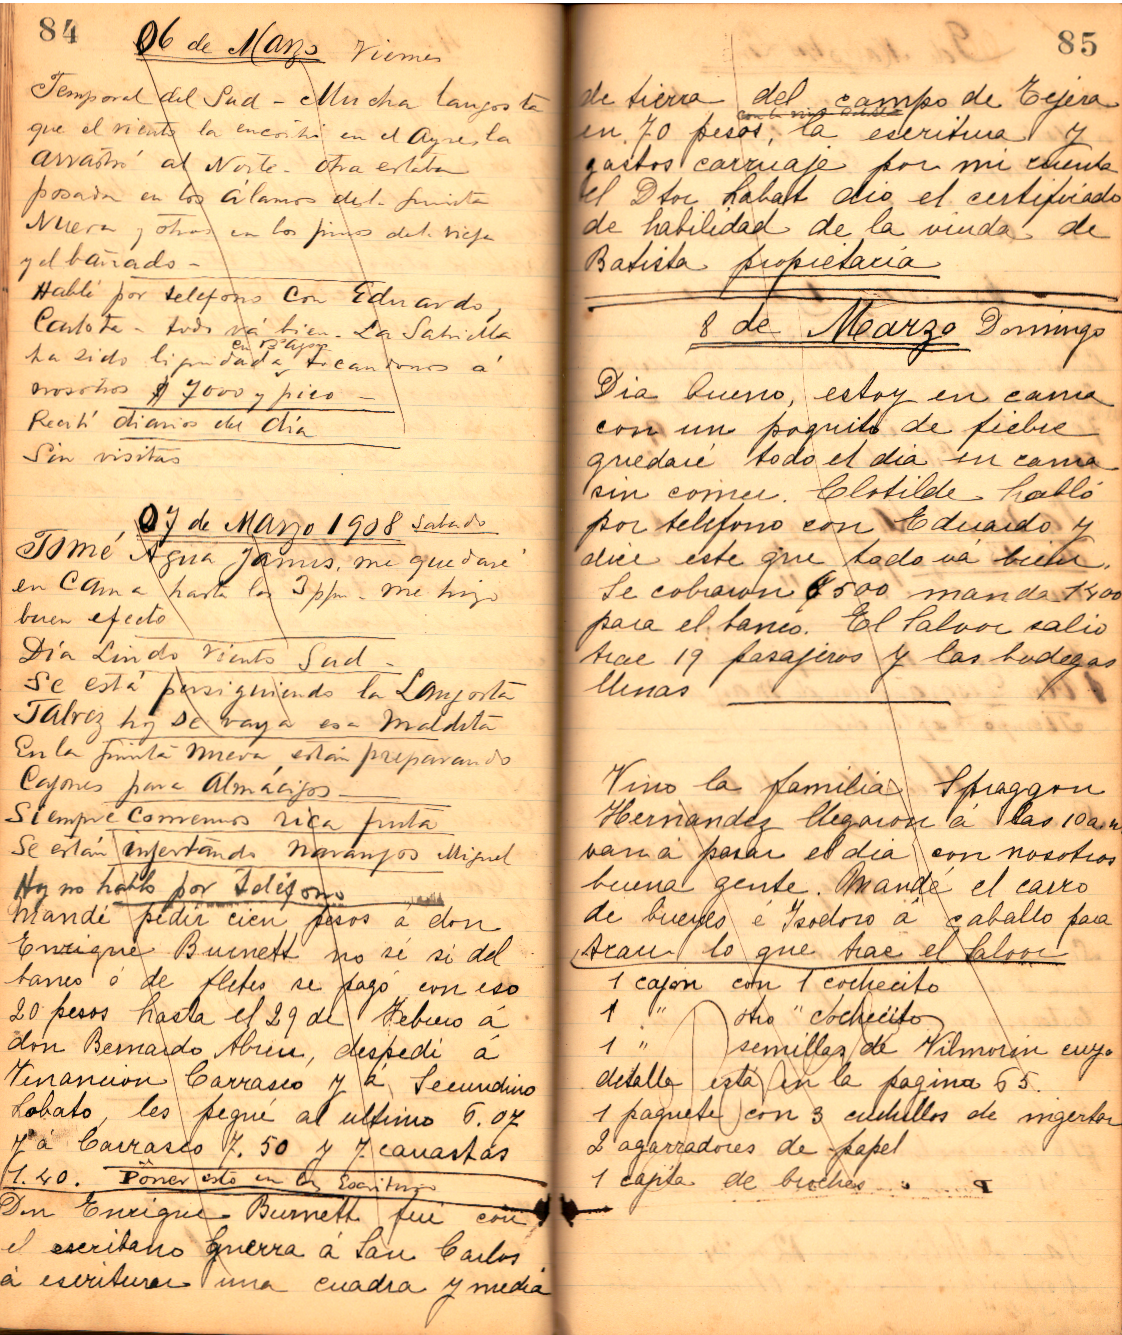 84
06 de Marzo Viernes
Temporal del Sud - Mucha langosta
que el viento la encontró en el Ayre, la
arrastró al Norte - otra estaba
posada en los Álamos de la quinta
Nueva y otras en los pinos de la vieja
y el bañado -
Hablé por teléfono con Eduardo,
Carlota - todo vá bien - La Sabrilla
ha sido liquidada en Bs Ayres tocandonos á
nosotros $ 7000 y pico -
Recibí diarios del día
Sin visitas
07 de Marzo 1908 Sabado
Tomé Agua Janus, me quedaré
en Cama hasta las 3 ppm - me hizo
buen efecto
Día Lindo Viento Sud -
Se está persiguiendo la Langosta
Talvez hoy se vaya esa maldita
En la quinta nueva están preparando
Cajones para Almácigos -
Siempre comemos rica fruta
Se están injertando naranjos Miguel
Hoy no hablo por Teléfono
Mandé pedir cien pesos a don
Enrique Burnett no sé si del
banco ó de fletes se pagó con eso
20 pesos hasta el 29 de Febrero á
don Bernardo Abreu, despedí á
Venancion Carrasco y á Secundino
Lobato, les pegué al ultimo 6.07
y á Carrasco 7.50 y 7 canastas
1.40. Poner esto en
Don Enrique Burnett fué con
el escribano Guerra á San Carlos
á escriturar una cuadra y media
85
de tierra del campo de Tejera
con la viuda Batista
en 70 pesos, la escritura y
gastos carruaje por mi cuenta
el Dtor Labat dio el certificado
de habilidad de la viuda de
Batista propietaria
8 de Marzo Domingo
Dia bueno, estoy en cama
con un poquito de fiebre
quedaré todo el dia en cama
sin comer. Clotilde habló
por telefono con Eduardo y
dice este que todo vá bien.
Se cobraron $ 500 manda 1400
para el banco. El Salvor salio
trae 19 pasajeros y las bodegas
llenas
Vino la familia Spraggon
Hernandez llegaron á las 10 a.m
van á pasar el dia con nosotros
buena gente. Mandé el carro
de bueyes é Isodoro á caballo para
traer lo que trae el Salvor
1 cajon con 1 cochecito
1 " otro " cochecito
1 " semillas de Vilmorin cuyo
detalle está en la pagina 65.
1 paquete con 3 cuchillos de ingertar
2 agarradores de papel
1 cajita de broches